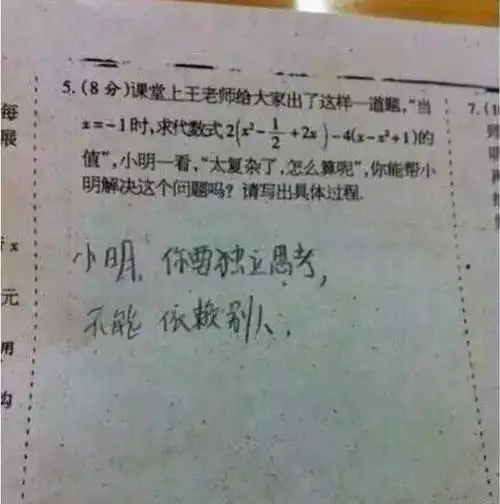 5.(8分)课堂上王老师给大家出了这样一道题,“当
x=-1时,求代数式2(x²-1/2+2x)-4(x-x²+1)的
值”,小明一看,“太复杂了,怎么算呢”,你能帮小
明解决这个问题吗?请写出具体过程.
小明,你要独立思考,
不能依赖别人.
每
展
x
元
用
7.(1